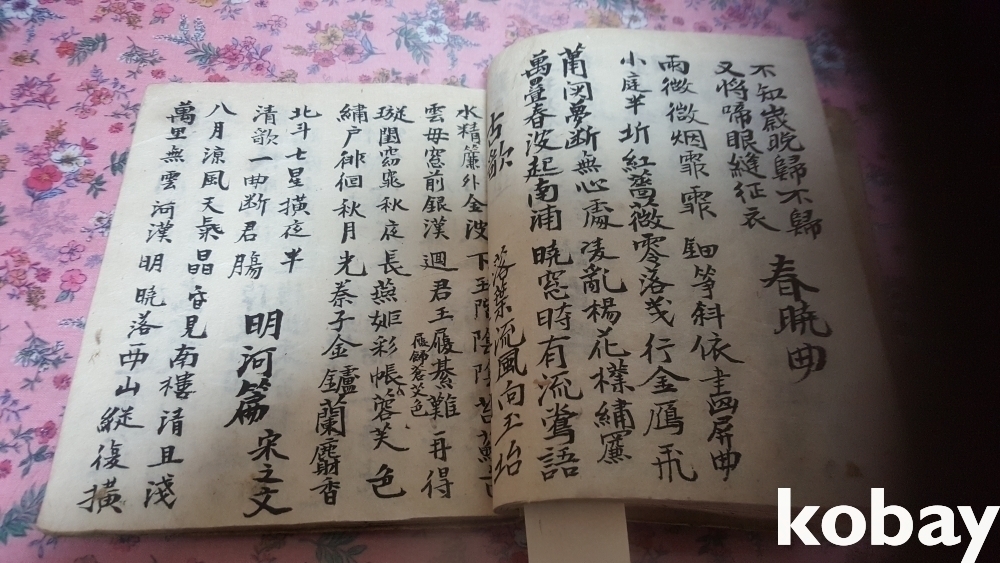 不知歲晚歸不歸
又將啼眼縫征衣
春曉曲
雨微微烟霏霏 鈿筝斜依畫屏曲
小庭半坼紅薔薇 零落幾行金鴈飛
夢斷無心處 凌亂楊花樸繡簾
萬疊春波起南浦 曉窓時有流鶯語
落葉流風向玉坮
水精簾外金波下玉階陰陰苔
雲毋窓前銀漢迴 君王履綦難再得
璇閨窈窕秋夜長 燕姬彩帳蓉芙色
繡户徘徊秋月光 秦子金鑪蘭麝香
北斗七星撗夜半
清歌一曲断君膓
明河篇 宋之文
八月凉風天氣晶 昏見南樓清且淺
萬里無雲河漢明 曉落西山縱復撗
kobay